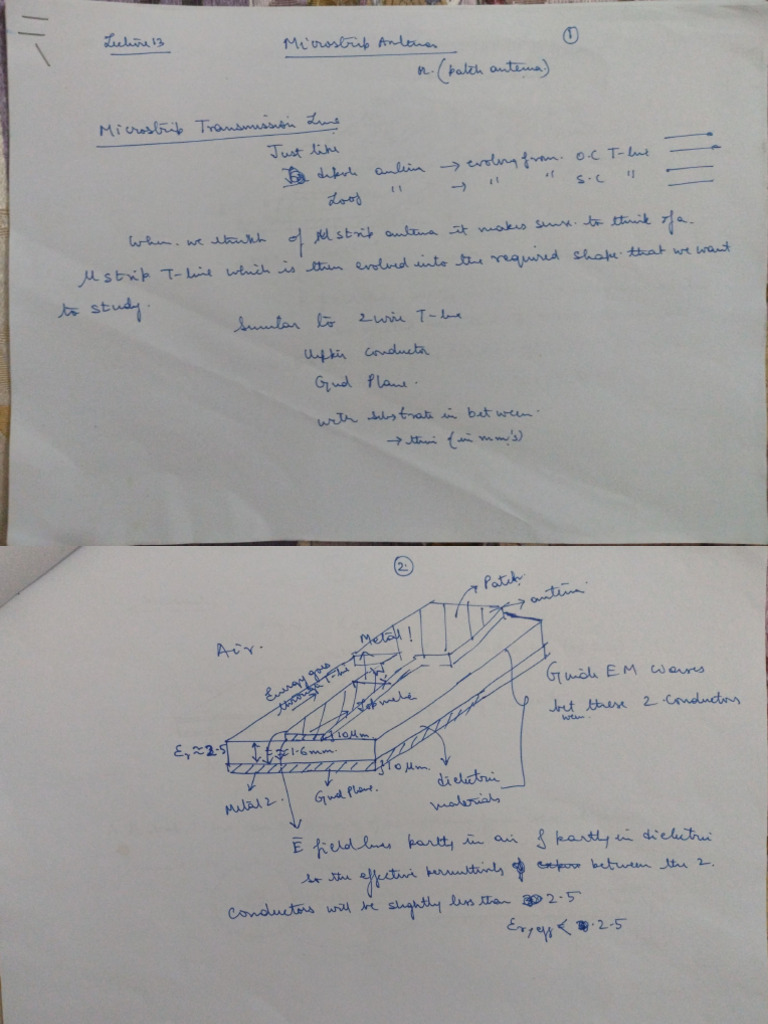 Lecture 13
Microstrip Antennas
①
(patch antenna)
Microstrip Transmission Line
Just like
dipole antenna → evolving from O.C T-line
Loop " → " " S.C "
When we think of Mstrip antenna it makes sense to think of a
Mstrip T-line which is then evolved into the required shape that we want
to study.
Similar to 2 wire T-line
Upper conductor
Gnd Plane.
with substrate in between.
→ thin (in mm's)
②
Patch
→ antenna
Air.
Metal 1
Energy goes
through T-line
W
Top metal
Guide EM waves
between these 2 conductors
10µm
εr ≈ 2.5
t ≈ 1.6mm
10µm.
Metal 2.
Gnd Plane.
dielectric
materials
E field lines partly in air & partly in dielectric
so the effective permittivity between the 2
conductors will be slightly less than 2.5
εr,eff < 2.5